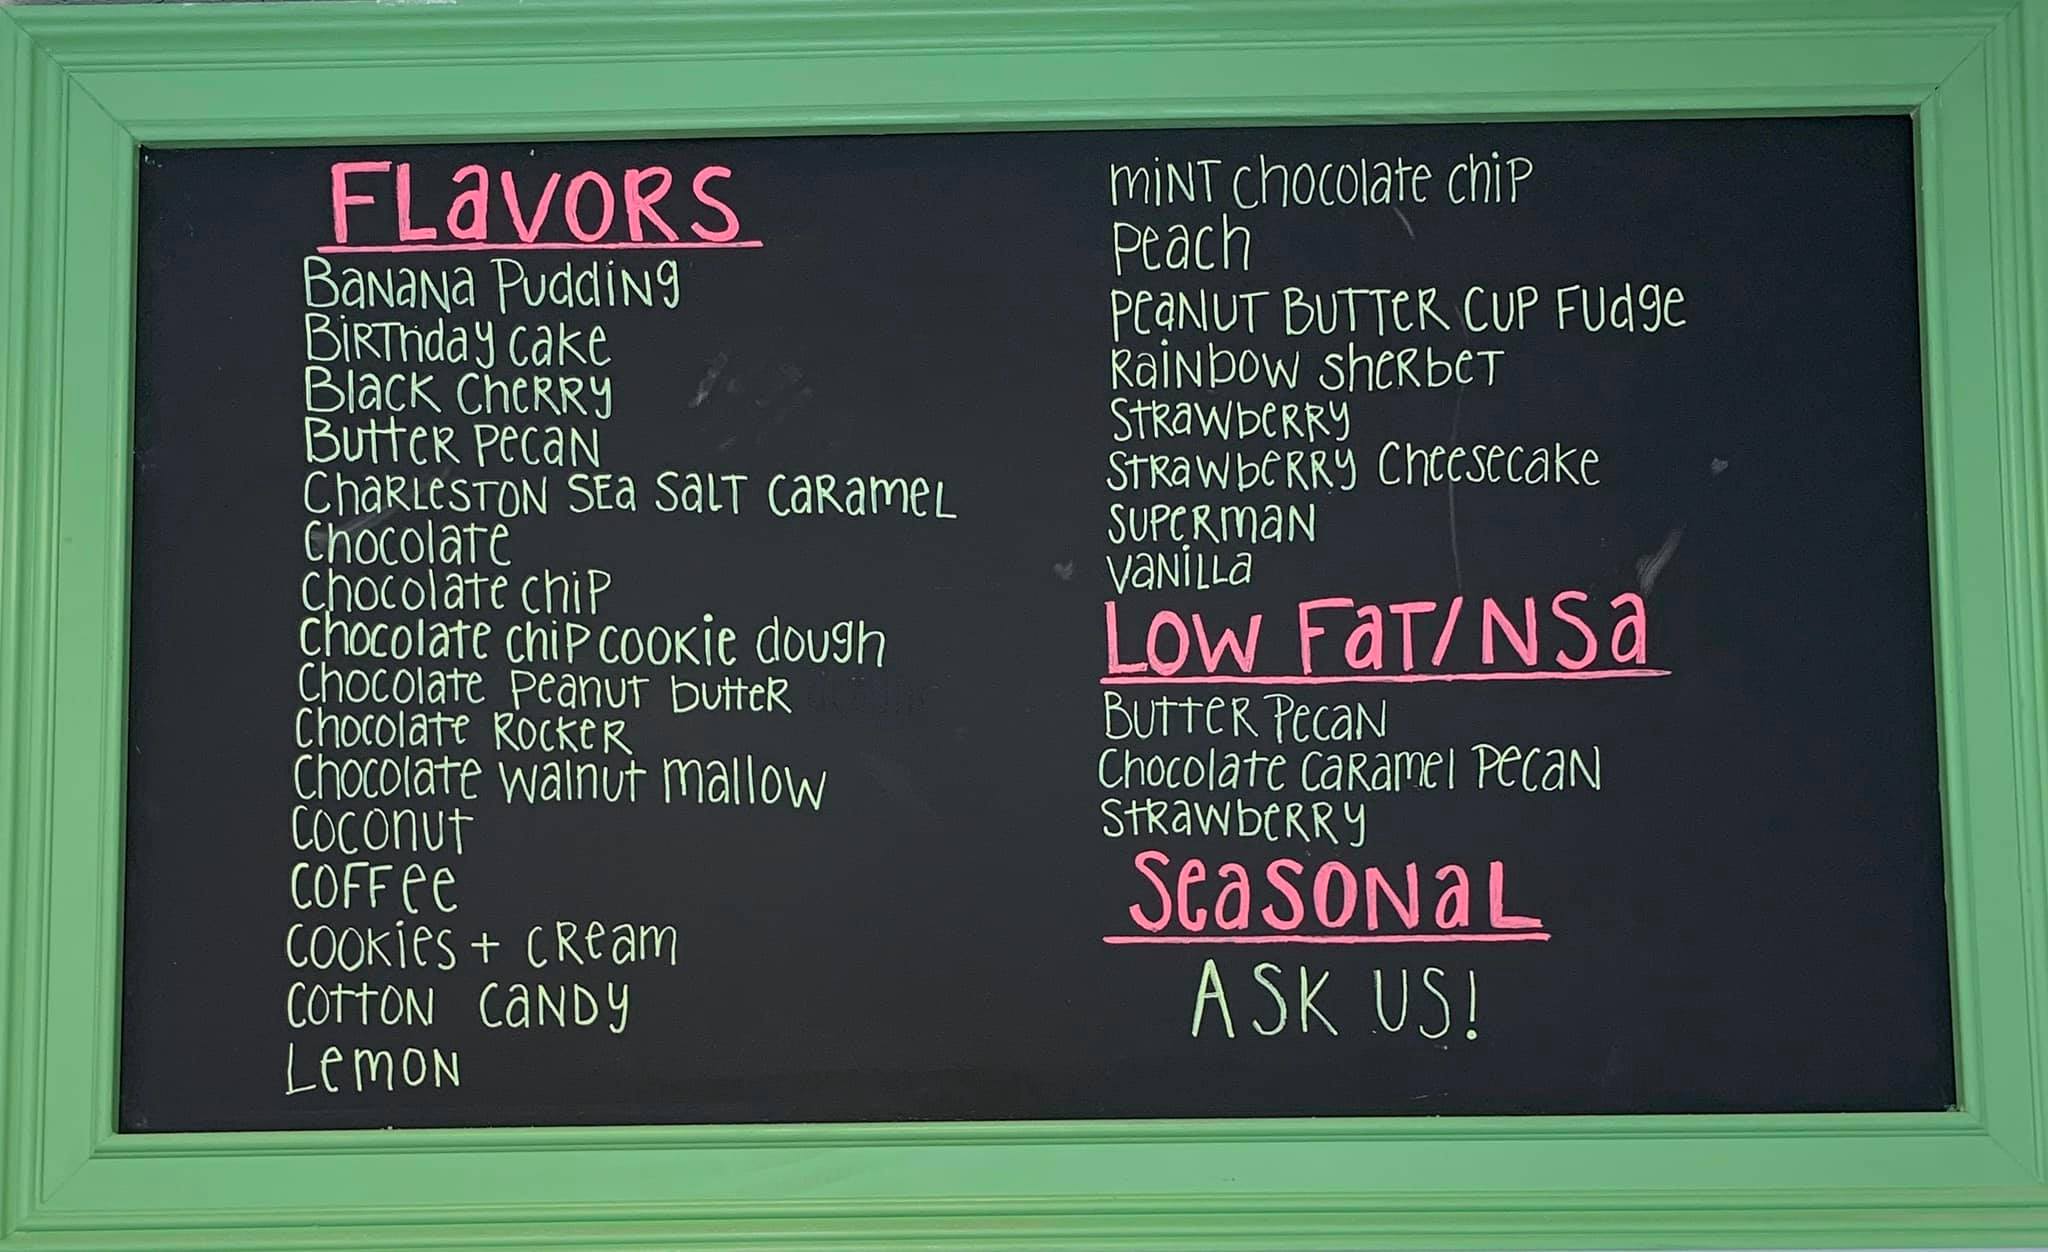 FLaVORS
BaNaNa Pudding
BiRThday cake
Black Cherry
Butter Pecan
Charleston Sea Salt Caramel
Chocolate
Chocolate chip
Chocolate chip cookie dough
Chocolate Peanut butter
Chocolate Rocker
Chocolate walnut mallow
Coconut
Coffee
Cookies + Cream
Cotton Candy
Lemon
Mint chocolate chip
Peach
Peanut Butter Cup Fudge
Rainbow Sherbet
Strawberry
Strawberry Cheesecake
Superman
Vanilla
Low Fat/NSa
Butter Pecan
Chocolate Caramel Pecan
Strawberry
Seasonal
ASK US!